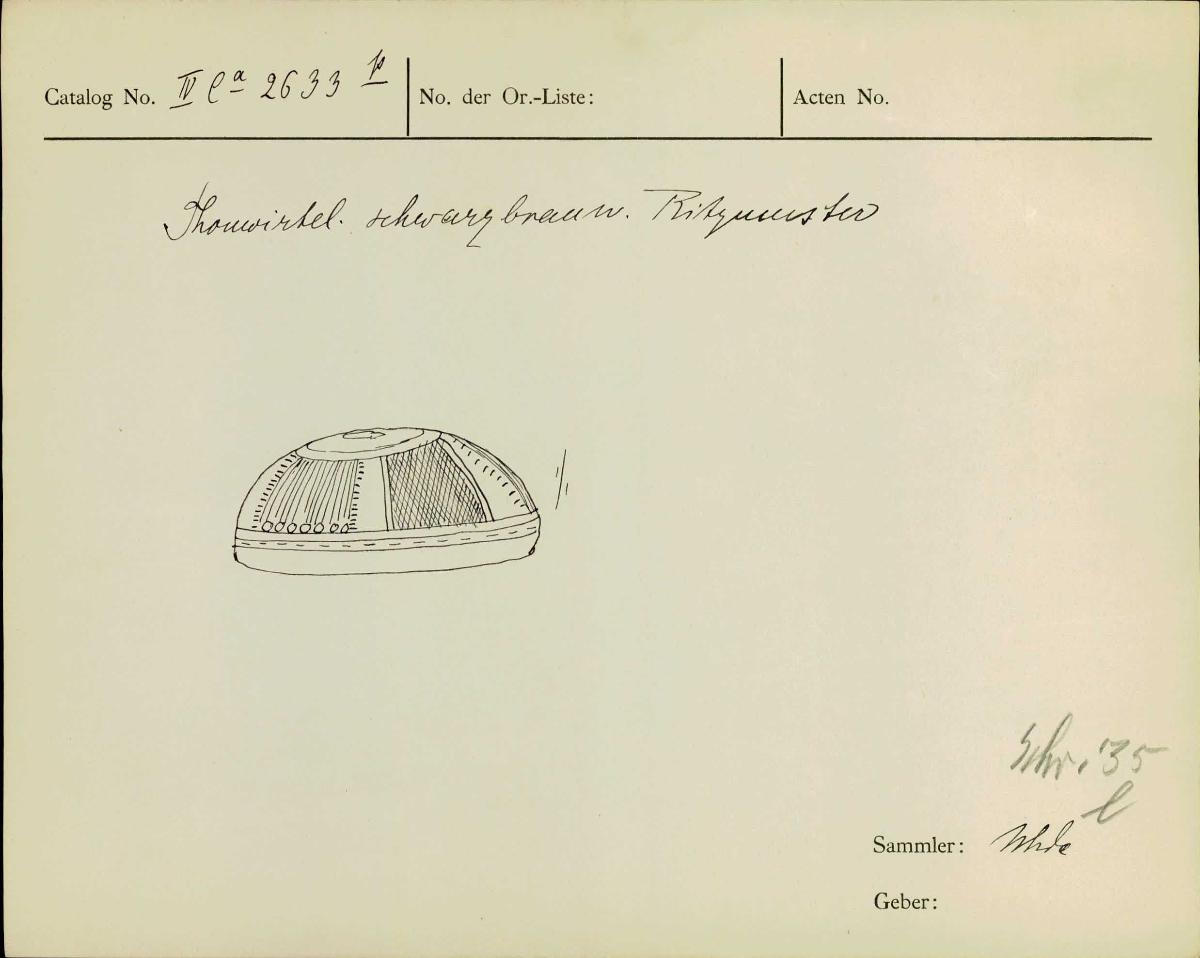 Catalog No. IV Ca 2633 p
No. der Or.-Liste:
Acten No.
Thonwirtel. schwarzbraun. Ritzmuster
Schr. '35
Sammler: Uhde
Geber: